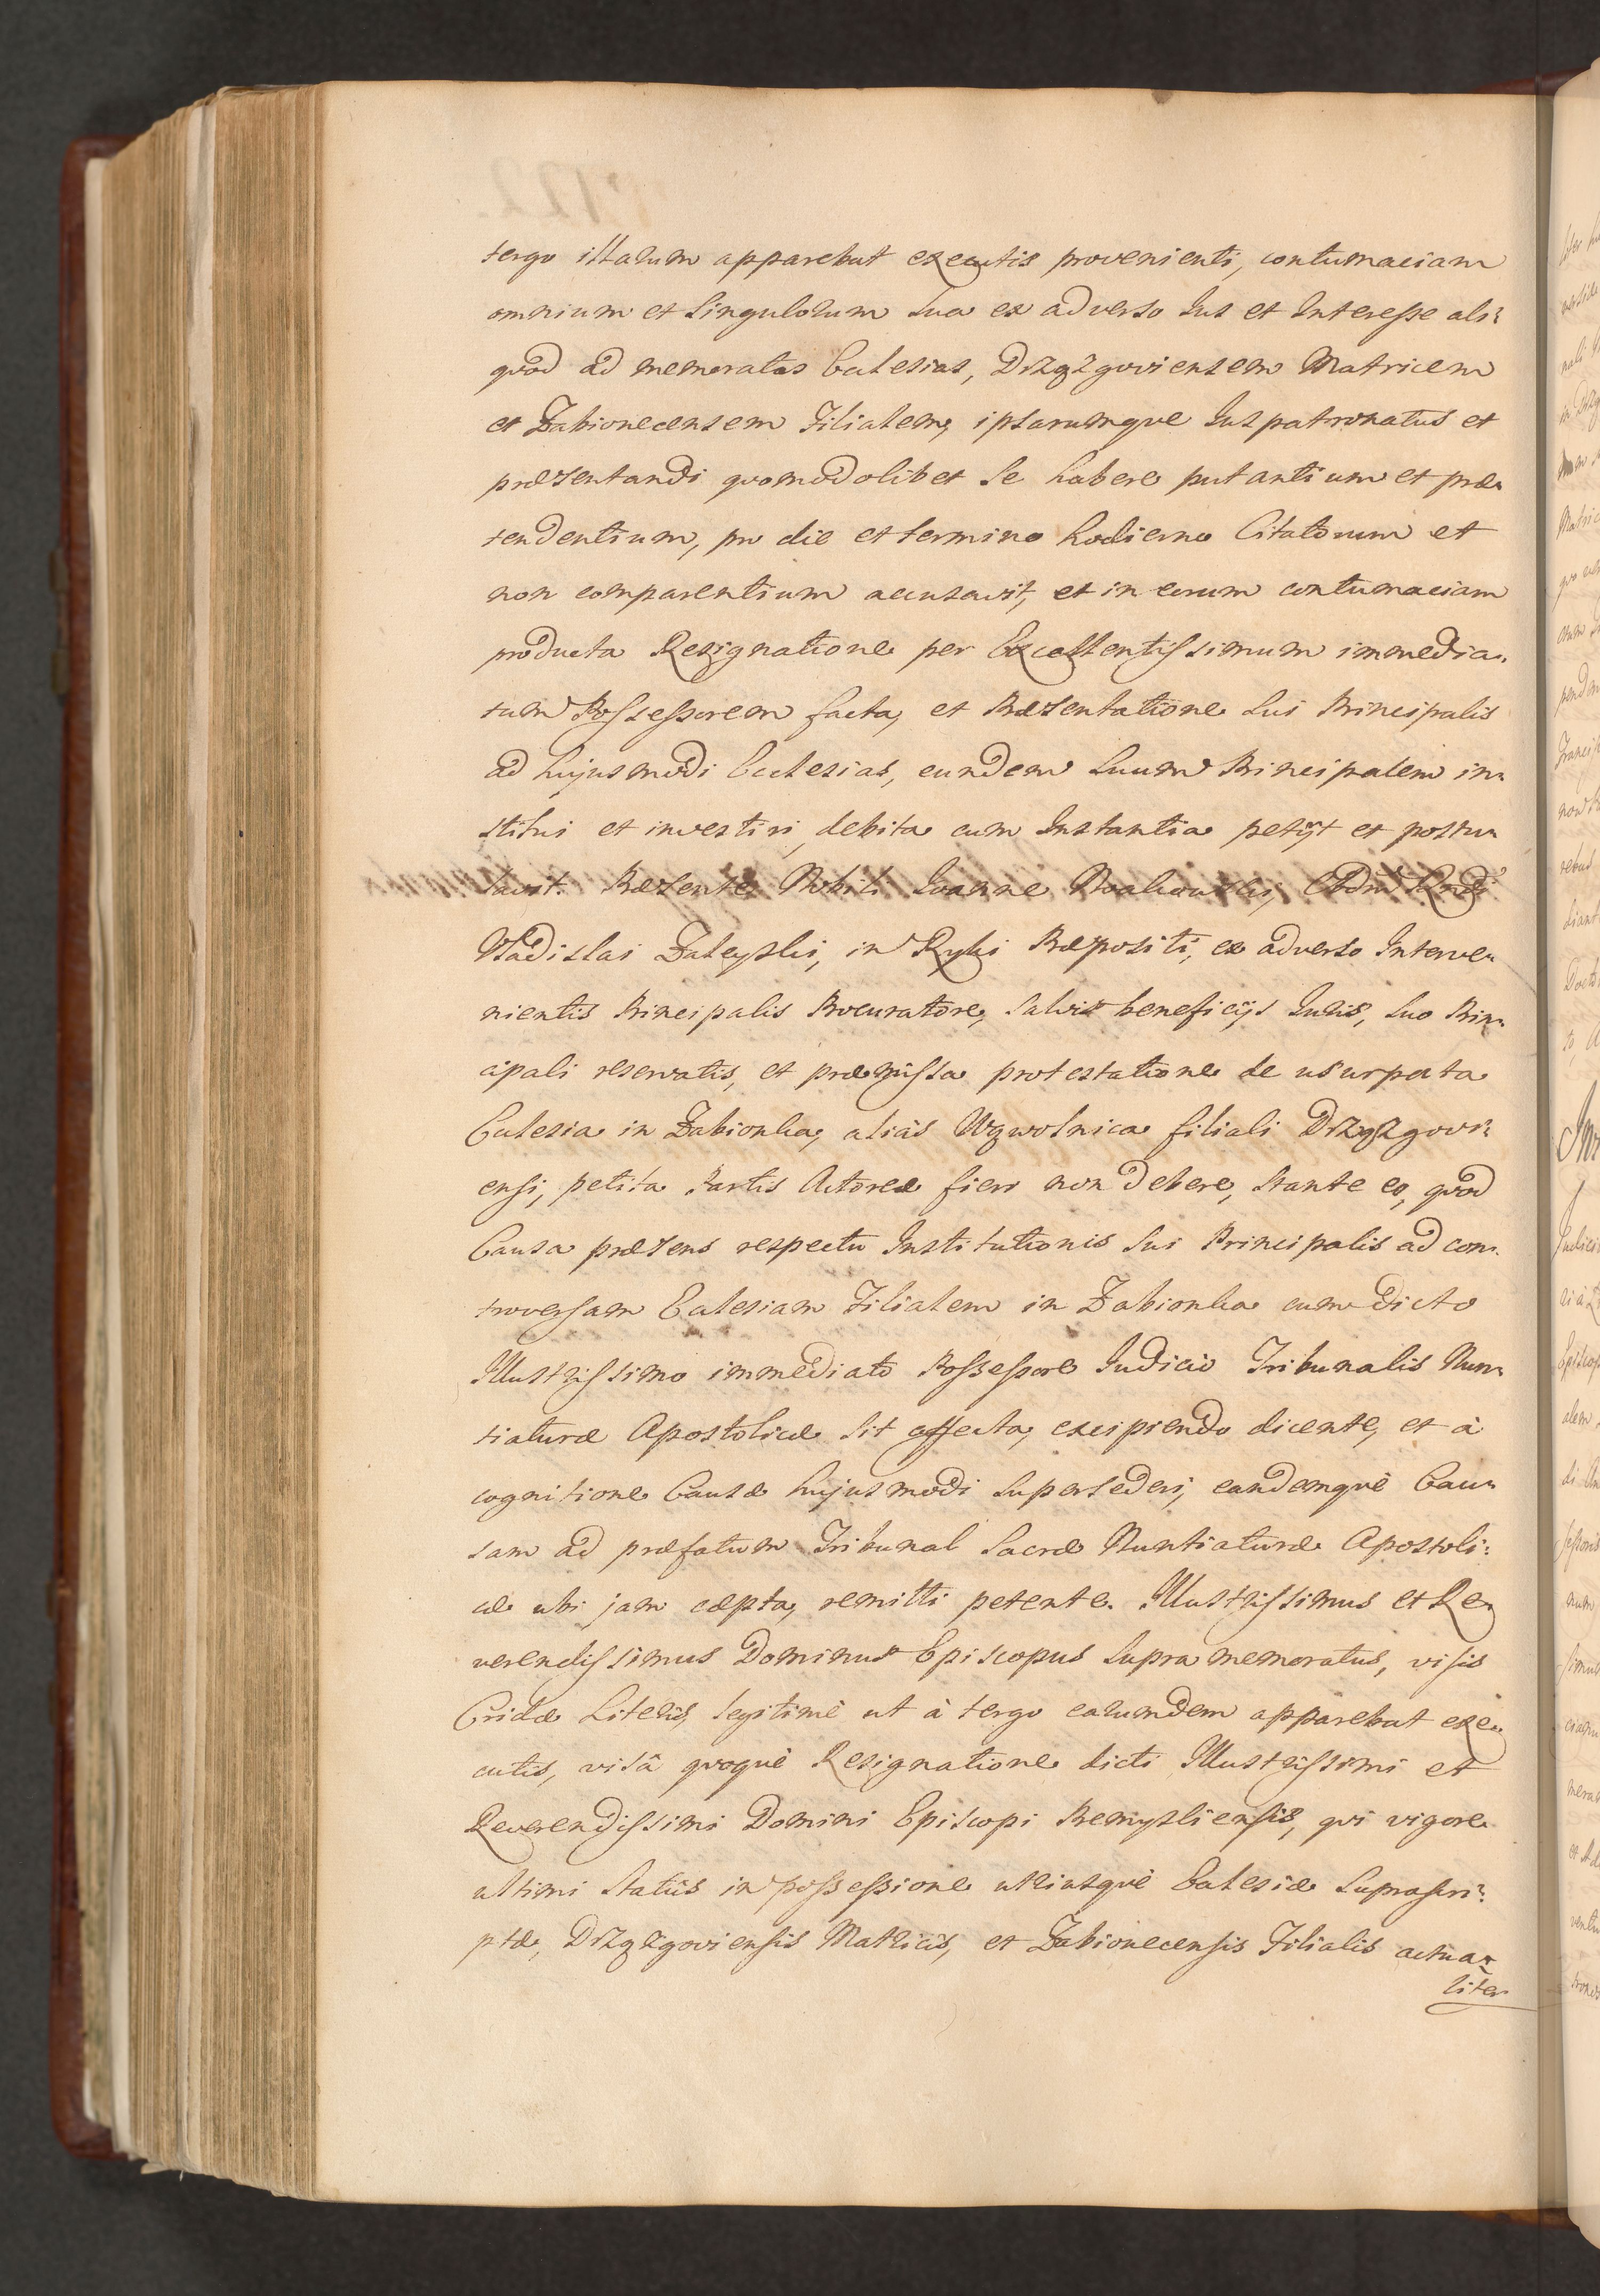 tergo illarum apparebat executis provenienti, contumaciam
omnium et singulorum sua ex adverso Jus et Interesse ali:
quod ad memoratas Ecclesias, Drzązgoviensem Matricem
et Żabionecensem Filialem, ipsarumque Juspatronatus et
præsentandi quomodolibet se habere putantium et præ:
tendentium, pro die et termino hodierno Citatorum et
non comparentium accusavit, et in eorum contumaciam
producta Resignatione per Excellentissimum immedia:
tum Possessorem facta, et Præsentatione sui Principalis
ad hujusmodi Ecclesias, eundem suum Principalem in:
stitui et investiri, debita cum Instantia petijt et postu:
lavit. Præsente Nobili Joanne
Vladislai Zaleyski, in Ryki Præpositi, ex adverso Interve:
nientis Principalis Procuratore, salvis beneficijs Juris, suo Prin:
cipali reservatis, et præmissa protestatione de usurpata
Ecclesia in Żabionka, aliàs Wązwolnica filiali Drzązgovi:
ensi, petita Partis Actoreæ fieri non debere, stante eo, quod
Causa præsens respectu Institutionis sui Principalis ad con:
troversam Ecclesiam Filialem in Żabionka cum dicto
Illustrissimo immediato Possessore Judicio Tribunalis Nun:
tiaturæ Apostolicæ sit affecta, excipiendo dicente, et à
cognitione Causæ hujusmodi supersederi, eandemquè Cau:
sam ad præfatum Tribunal Sacræ Nuntiaturæ Apostoli:
cæ ubi jam cæpta, remitti petente. Illustrissimus et Re:
verendissimus Dominus Episcopus supra memoratus, visis
Cridæ Literis, legitimè ut à tergo earumdem apparebat exe:
cutis, visâ quoquè Resignatione dicti Illustrissimi et
Reverendissimi Domini Episcopi Premysliensis, qui vigore
ultimi Statûs in possessione utriusquè Ecclesiæ suprascri:
ptæ, Drzązgoviensis Matricis, et Żabionecensis Filialis actua:
liter